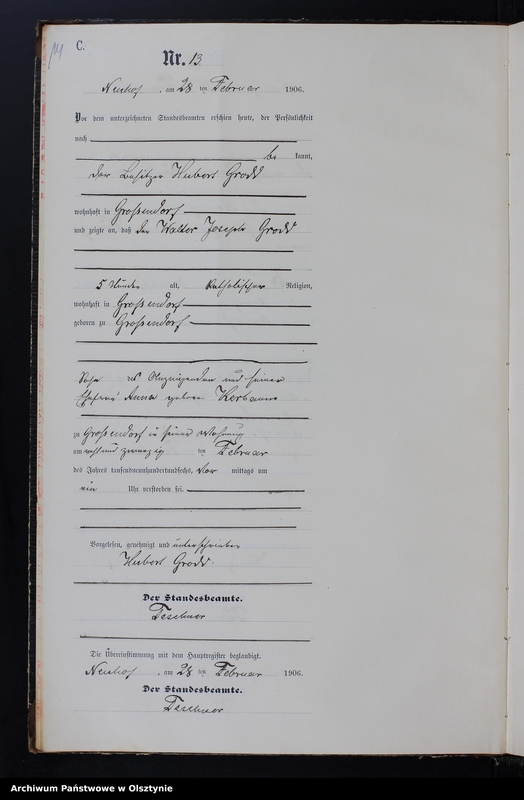 C.
Nr. 13.
Neuhof, am 28 ten Februar 1906.
Vor dem unterzeichneten Standesbeamten erschien heute, der Persönlichkeit
nach
be kannt,
der Besitzer Hubert Grodd
wohnhaft in Großendorf
und zeigte an, daß der Walter Joseph Grodd
5 Stunden alt, katholischer Religion,
wohnhaft in Großendorf
geboren zu Großendorf
Sohn des Anzeigenden und seiner
Ehefrau Anna geborene
zu Großendorf in seiner Wohnung
am acht und zwanzig ten Februar
des Jahres tausendneunhundertundsechs, Vor mittags um
ein Uhr verstorben sei.
Vorgelesen, genehmigt und unterschrieben
Hubert Grodd.
Der Standesbeamte.
Teschner
Die Übereinstimmung mit dem Hauptregister beglaubigt.
Neuhof, am 28 ten Februar 1906.
Der Standesbeamte.
Teschner
Archiwum Państwowe w Olsztynie